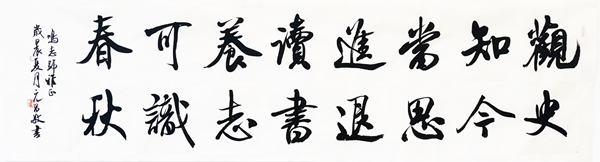 觀史
知今
當思
進退
讀書
養志
可識
春秋
鳴志師雅正
歲甲辰夏月元敬書